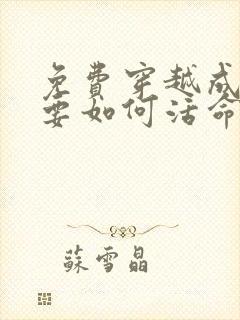 免費穿越成
要如何活命
蘇雪晶